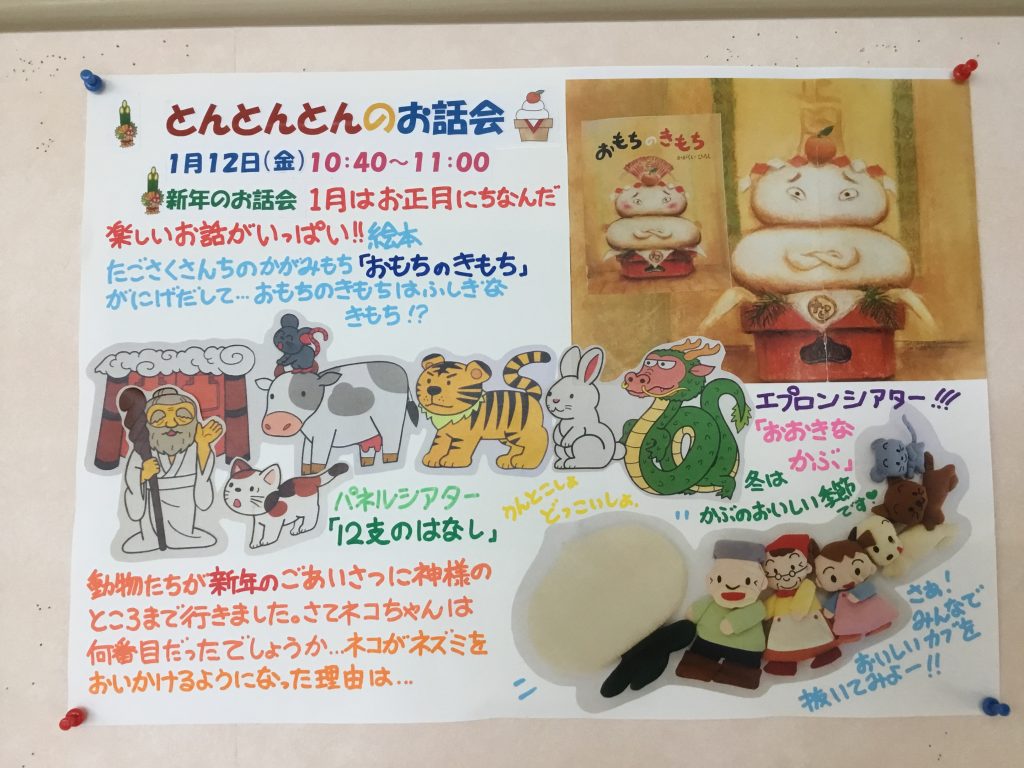 とんとんとんのお話会
1月12日(金)10:40〜11:00
新年のお話会 1月はお正月にちなんだ
楽しいお話がいっぱい!!絵本
たごさくさんちのかがみもち「おもちのきもち」
がにげだして…おもちのきもちはふしぎな
きもち!?
おもちのきもち
かがくいひろし
エプロンシアター!!!
「おおきな
かぶ」
冬は
かぶのおいしい季節
です♥
パネルシアター
「12支のはなし」
うんとこしょ
どっこいしょ。
動物たちが新年のごあいさつに神様の
ところまで行きました。さてネコちゃんは
何番目だったでしょうか…ネコがネズミを
おいかけるようになった理由は…
さあ!
みんなで
おいしいカブを
抜いてみよー!!